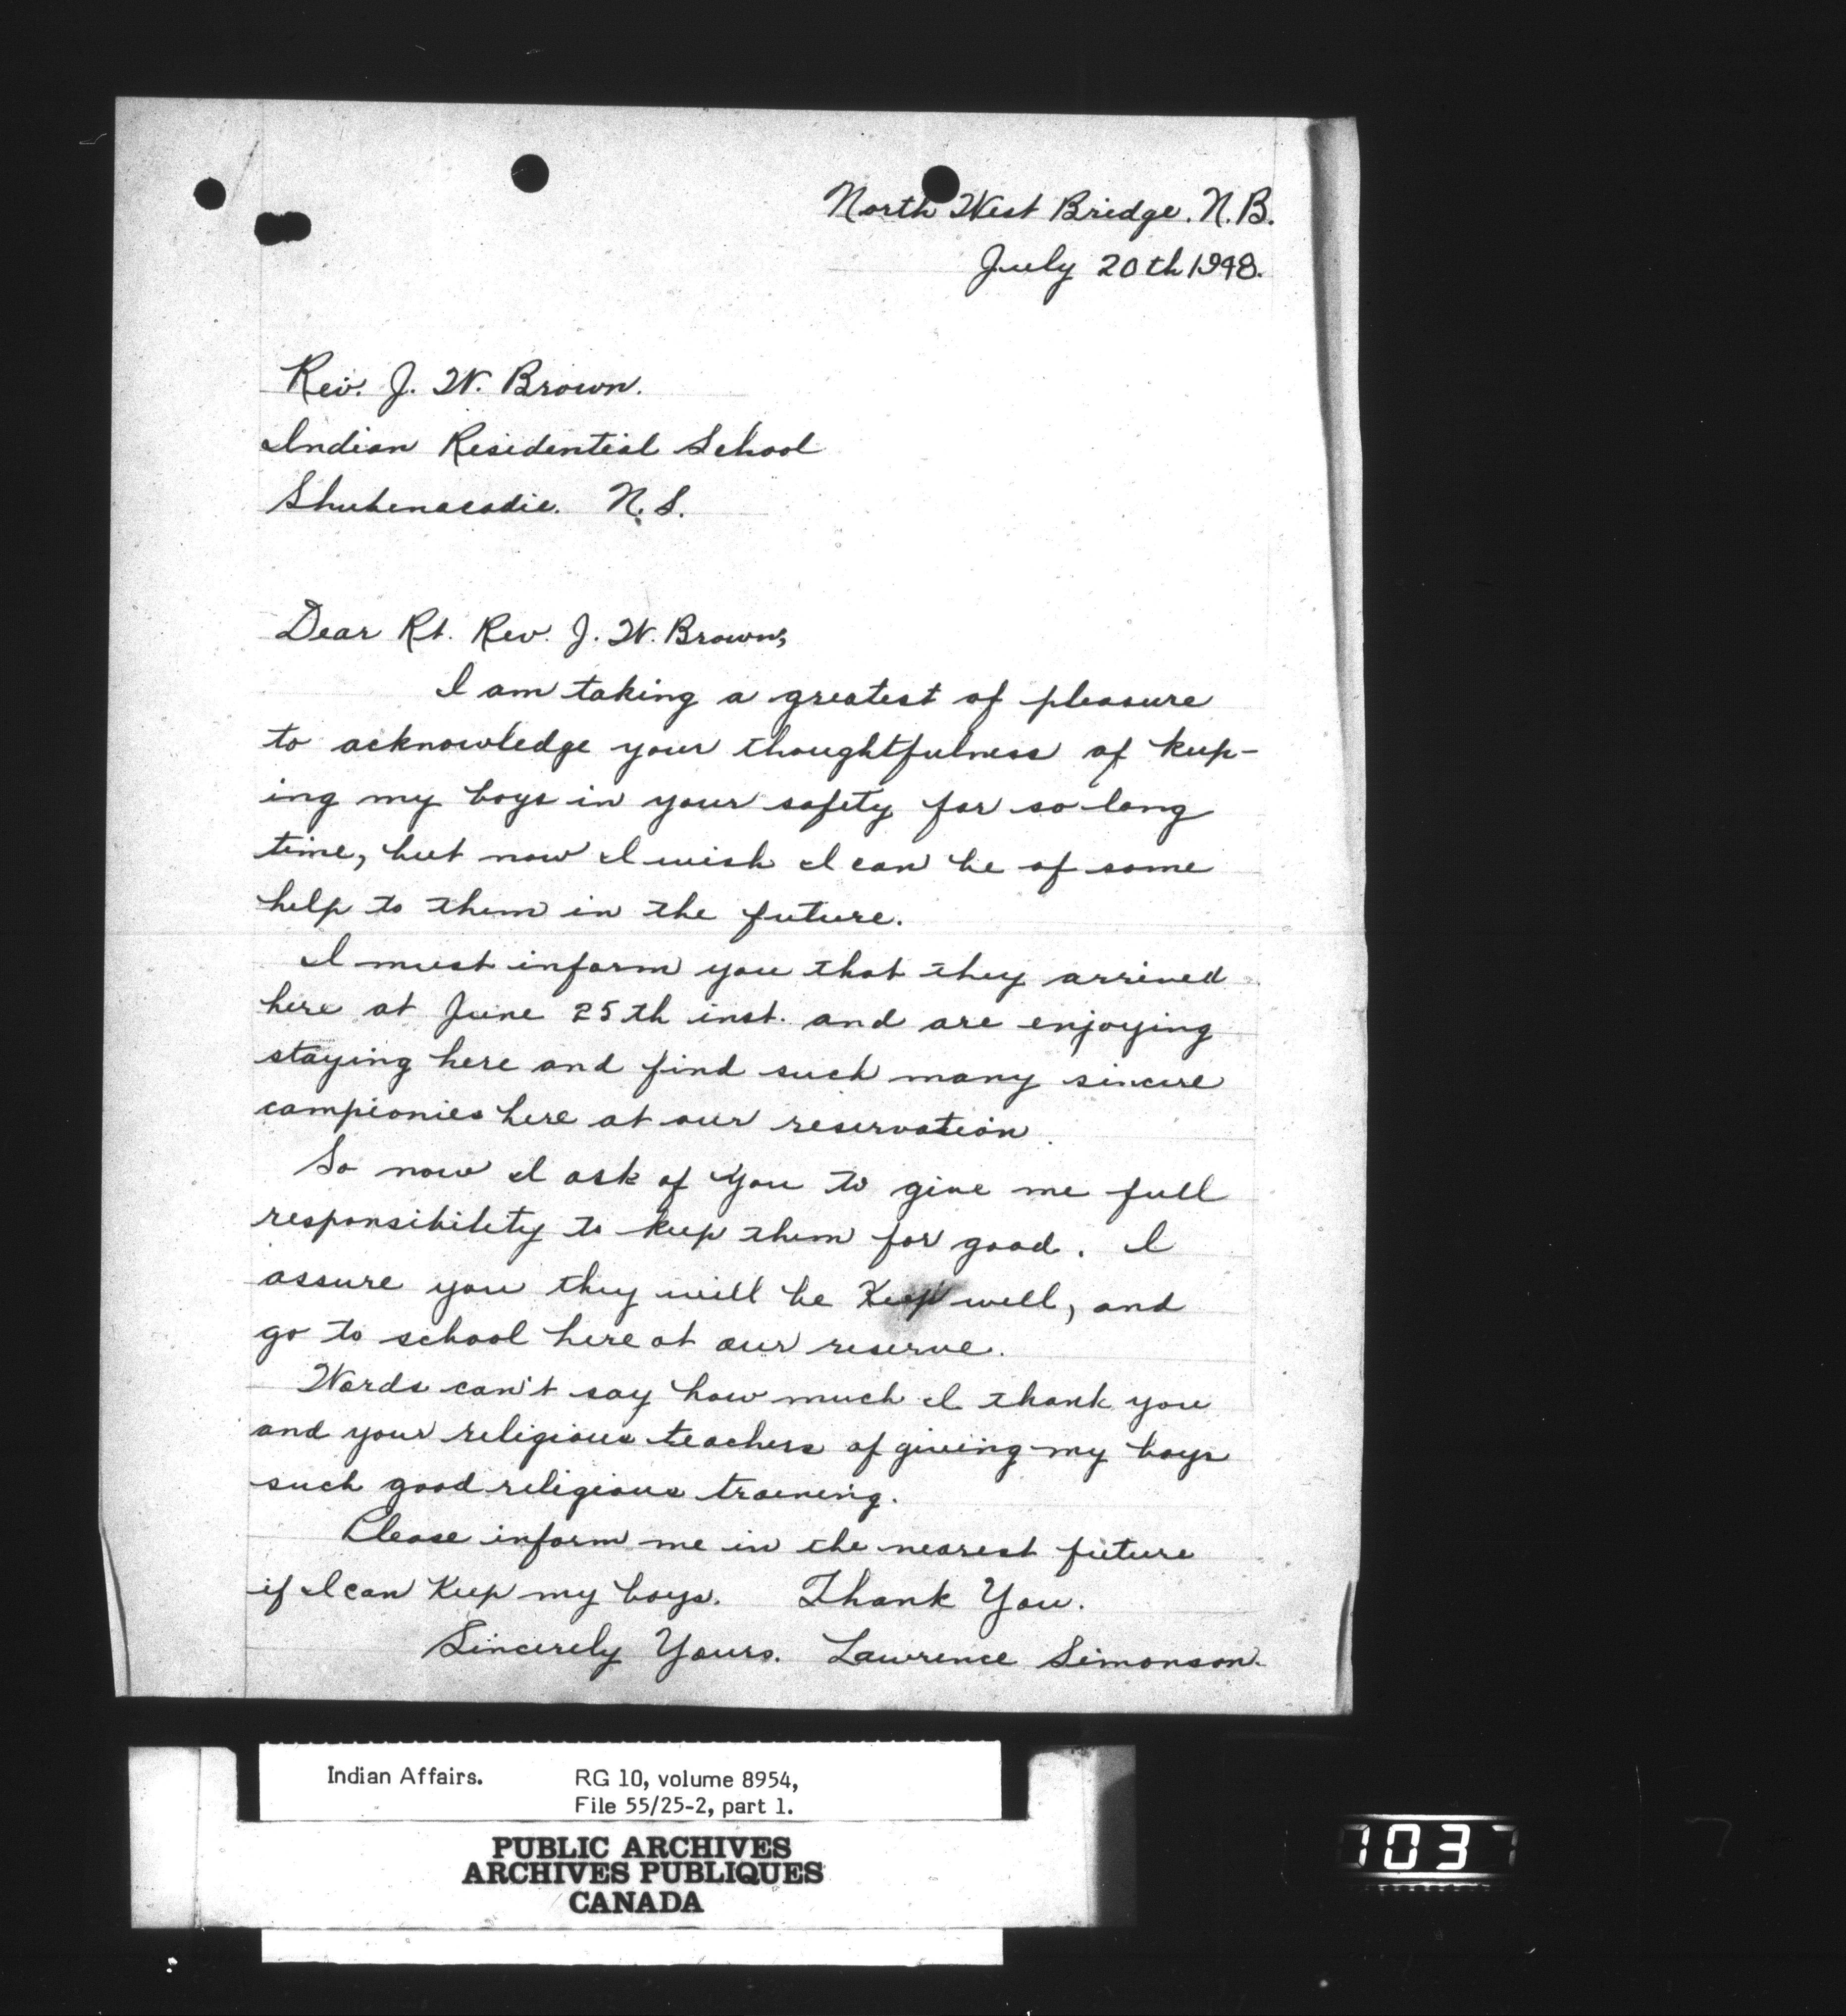 North West Bridge. N.B.
July 20th 1948.
Rev. J. W. Brown.
Indian Residential School
Shubenacadie. N.S.
Dear Rt. Rev. J. W. Brown,
I am taking a greatest of pleasure
to acknowledge your thoughtfulness of keep-
ing my boys in your safety for so long
time, but now I wish I can be of some
help to them in the future.
I must inform you that they arrived
here at June 25th inst. and are enjoying
staying here and find such many sincere
campionies here at our reservation.
So now I ask of you to give me full
responsibility to keep them for good. I
assure you they will be Keep well, and
go to school here at our reserve.
Words can't say how much I thank you
and your religious teachers of giving my boys
such good religious traening.
Please inform me in the nearest future
if I can Keep my boys. Thank You.
Sincerely Yours. Lawrence Simonson.
Indian Affairs. RG 10, volume 8954,
File 55/25-2, part 1.
PUBLIC ARCHIVES
ARCHIVES PUBLIQUES
CANADA
1037